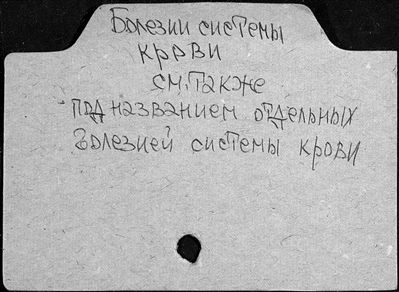 Болезни системы
крови
см. также
под названием отдельных
болезней системы крови